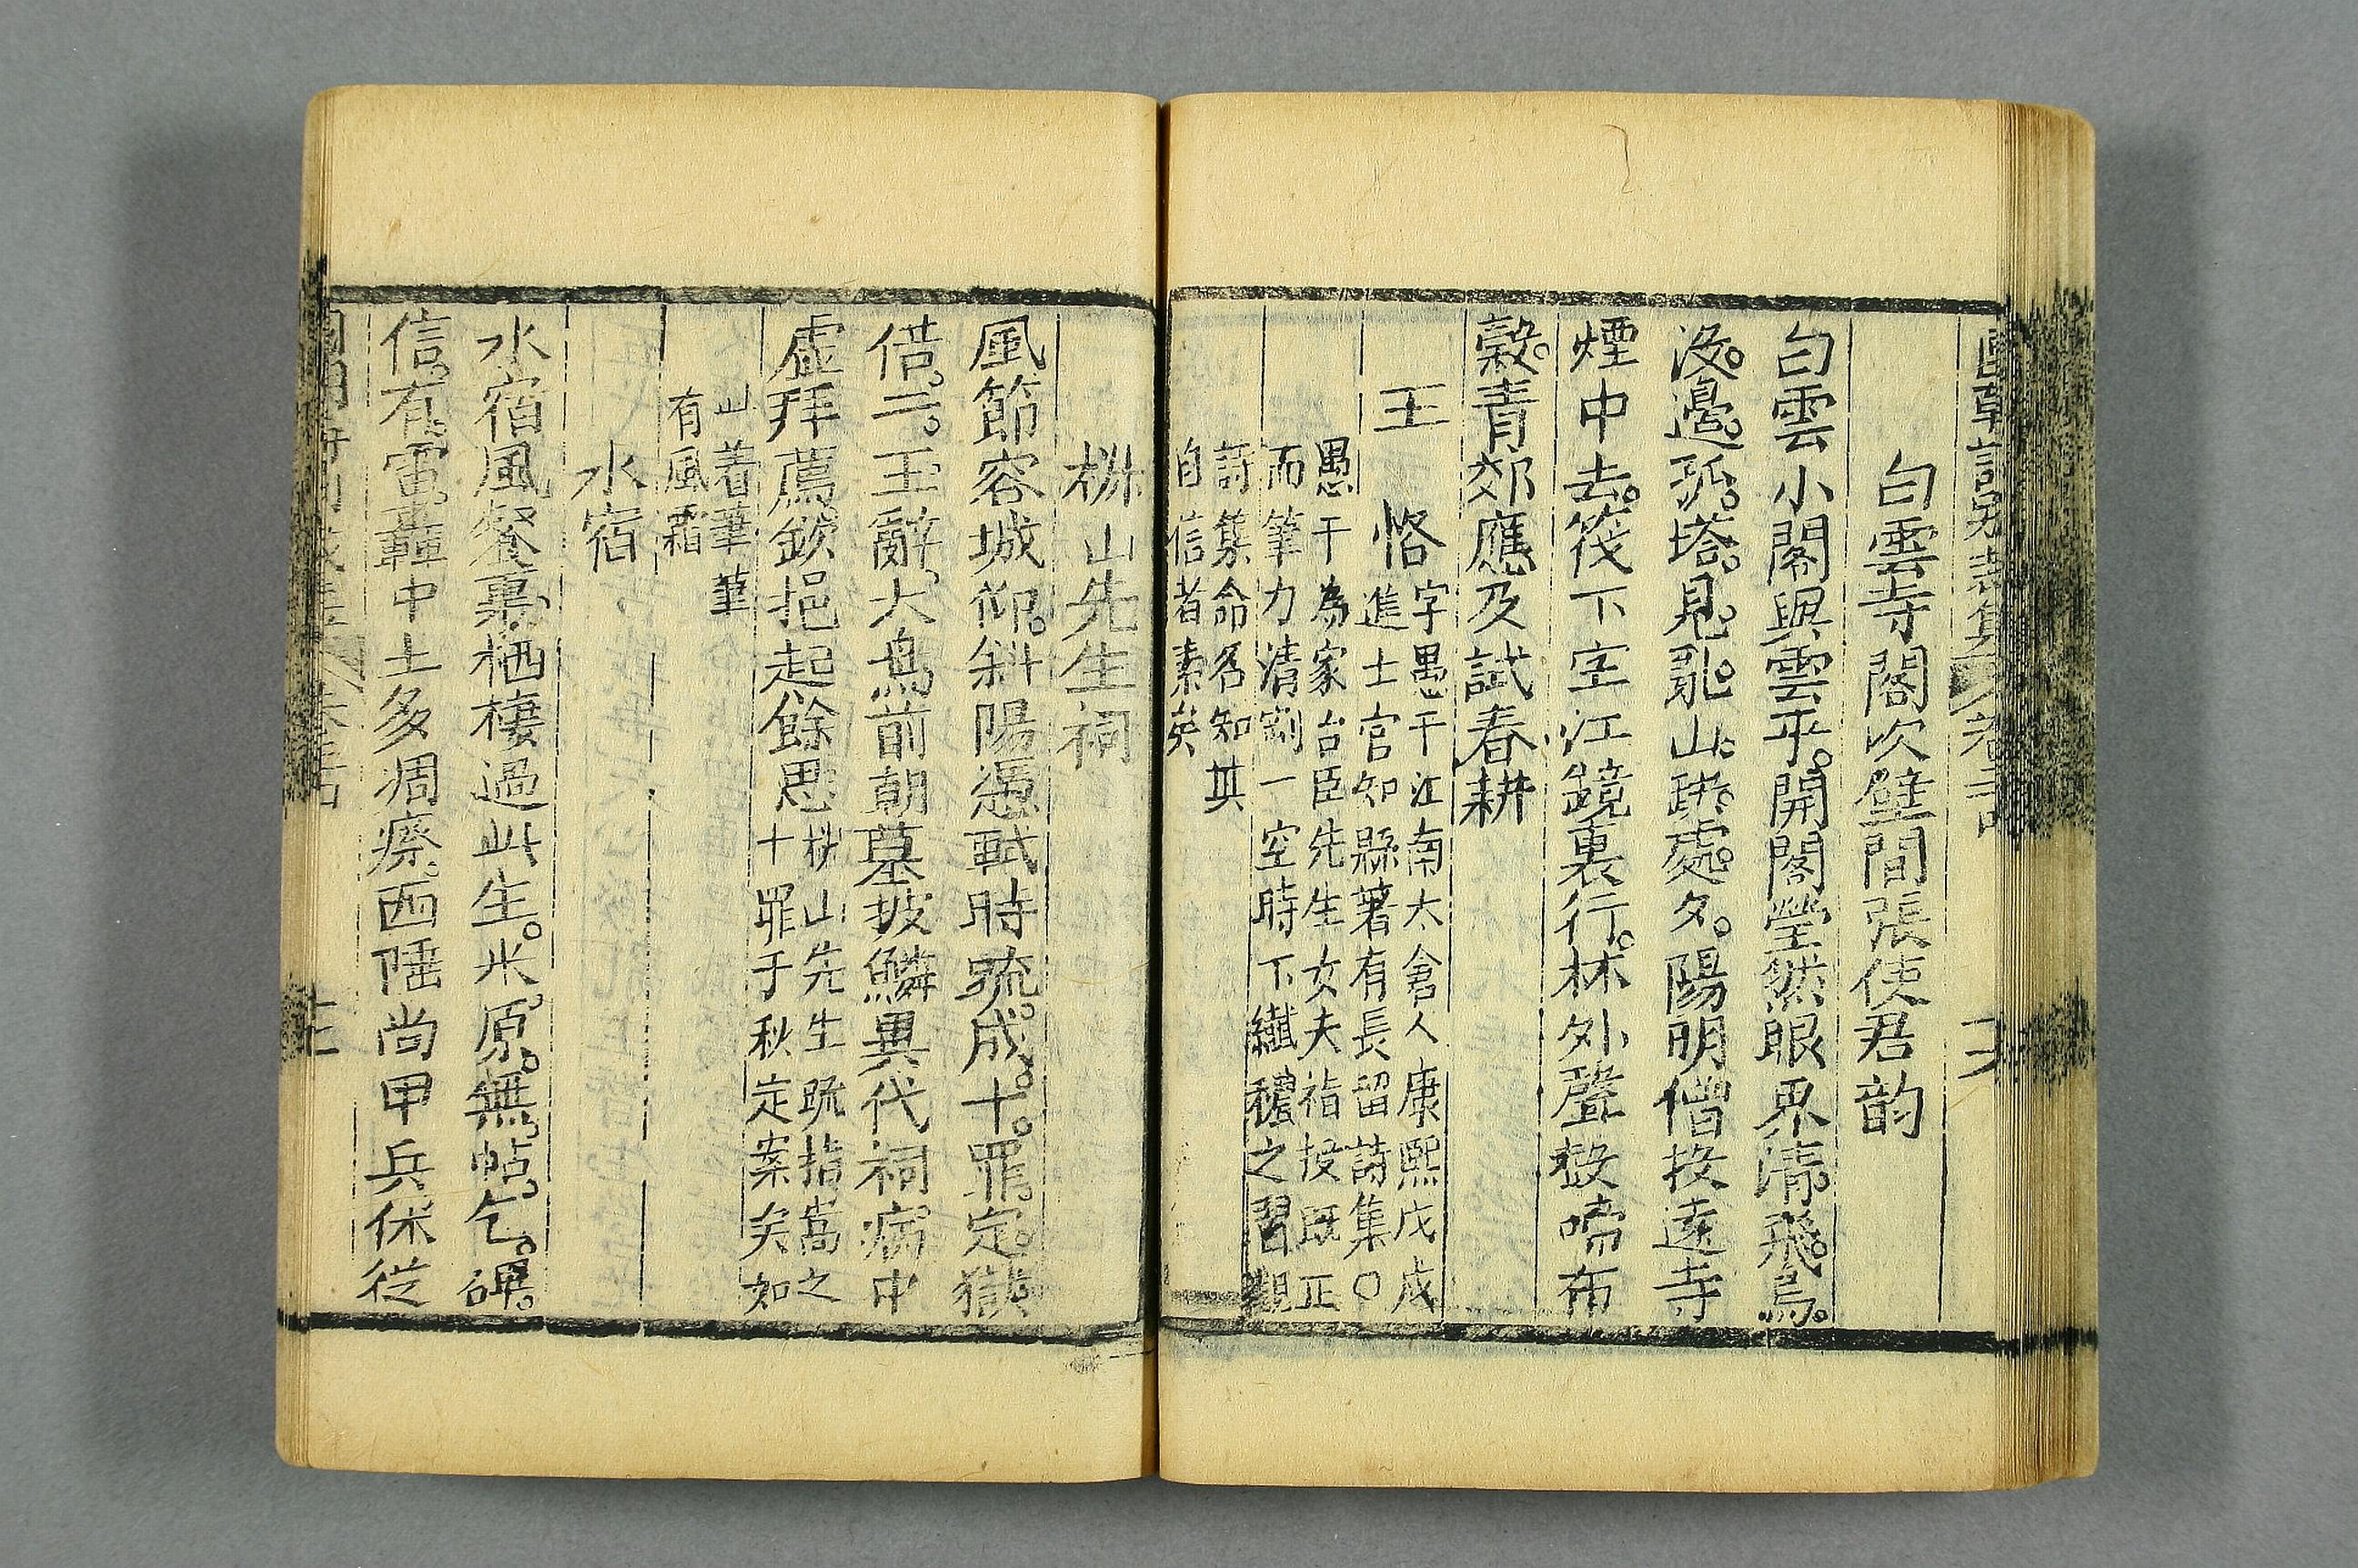 白雲寺閣次壁間張使君韵
白雲小閣與雲平開閣瑩然眼界清飛鳥
没邊孤塔見亂山缺處夕陽明僧投遠寺
煙中去筏下空江鏡裏行林外聲聲啼布
穀青郊應及試春耕
王恪
字愚千江南太倉人康熙戊戌
進士官知縣著有長留詩集〇
愚千為家台臣先生女夫指授既正
而筆力清剛一空時下纎穠之習觀
詩集命名知其
自信者素矣
椒山先生祠
風節容城仰斜陽憑軾時疏成十罪定獄
借二王辭大鳥前朝墓披鱗異代祠病中
虛拜薦欽挹起餘思
椒山先生疏指嵩之
十罪于秋定案矣如
山着筆筆
有風霜
水宿
水宿風餐裏栖棲過此生米原無帖乞碑
信有雷轟中土多凋瘵西陲尚甲兵休從